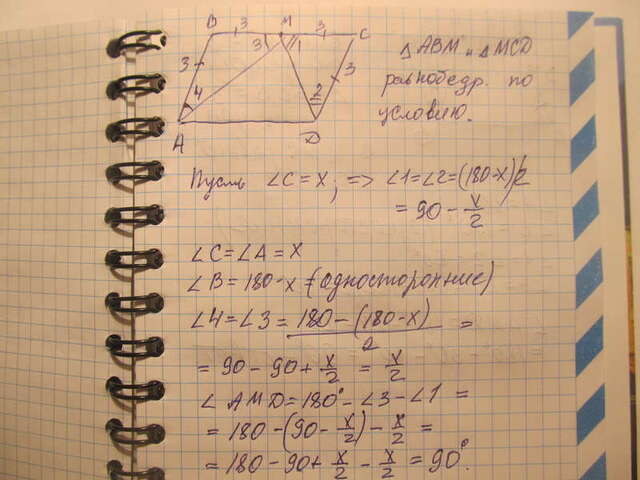 B 3 M 3 C
3 3 1 3
4 2
A D
△ABM и △MCD
равнобедр. по
условию.
Пусть ∠C = X; => ∠1=∠2=(180-X)/2
= 90 - X/2
∠C = ∠A = X
∠B = 180 - X (односторонние)
∠4 = ∠3 = (180 - (180 - X))/2 =
= 90 - 90 + X/2 = X/2
∠ AMD = 180° - ∠3 - ∠1 =
= 180 - (90 - X/2) - X/2 =
= 180 - 90 + X/2 - X/2 = 90°.